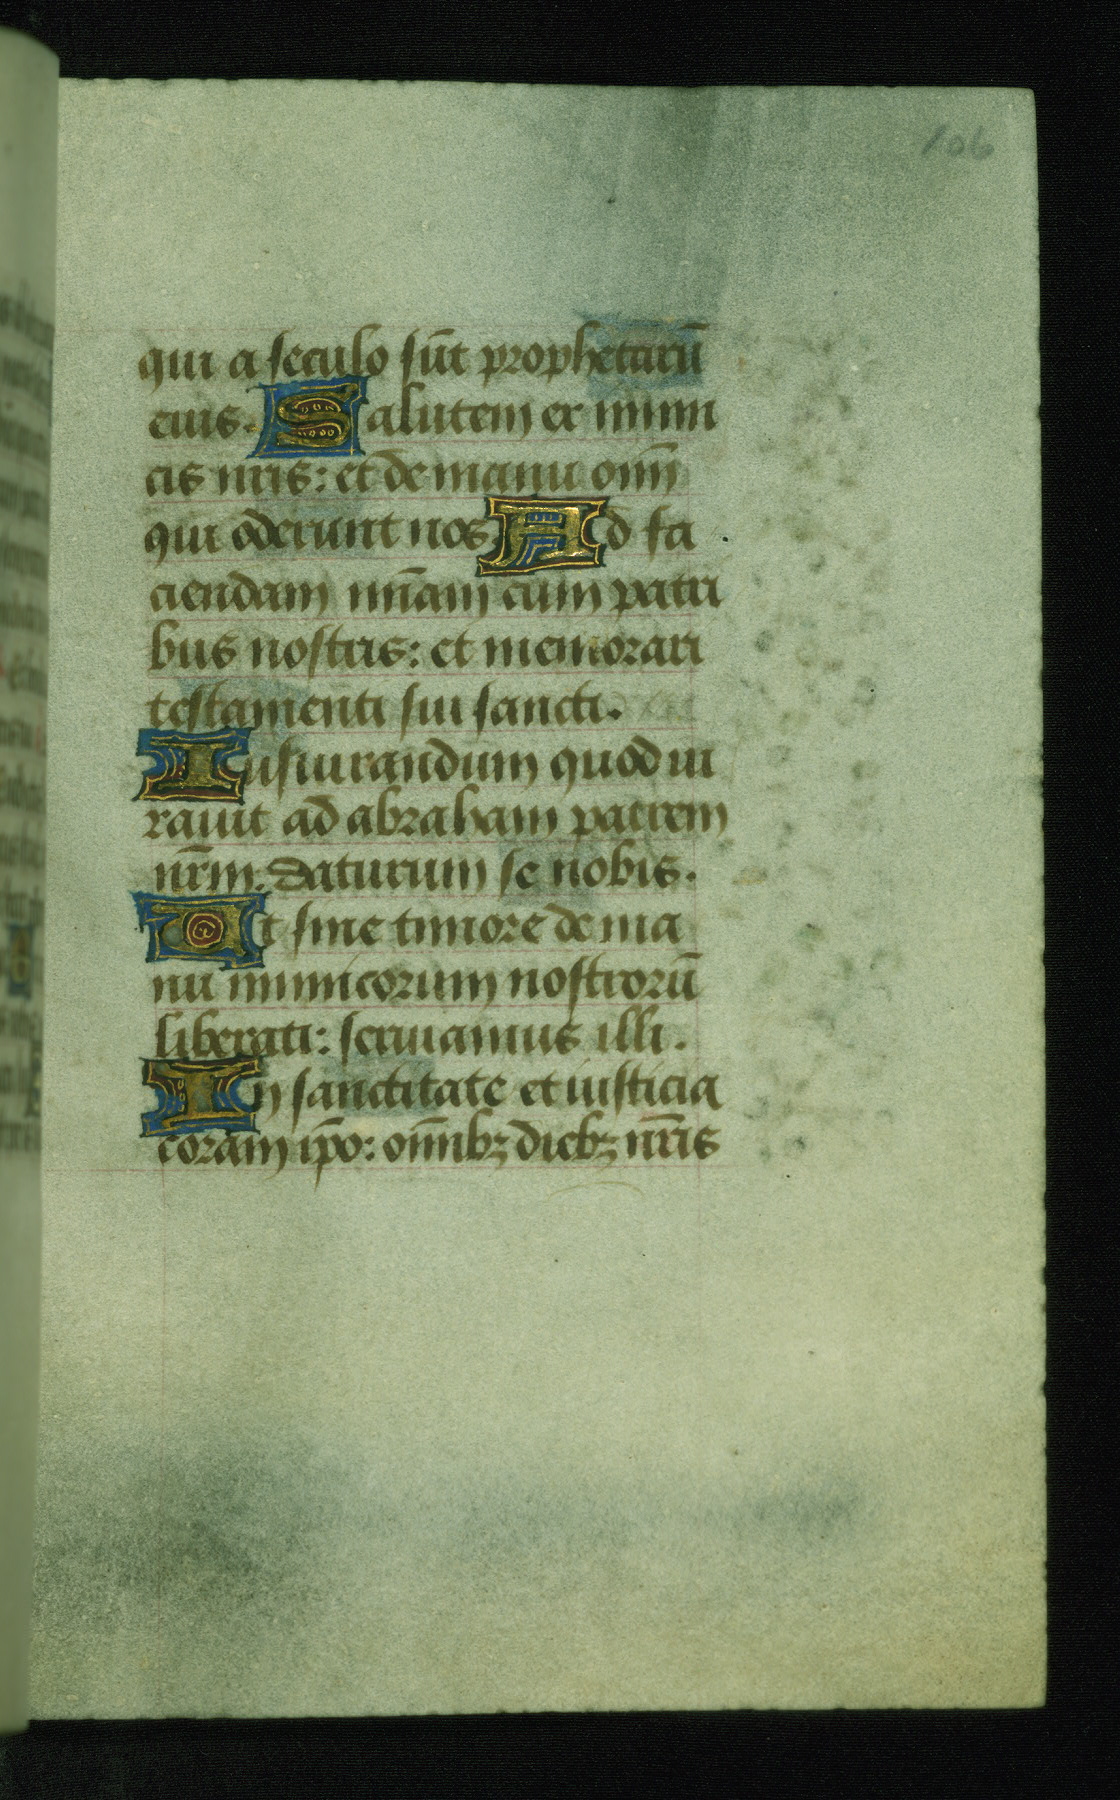 106
qui a seculo sūt prophetarū
eius. Salutem ex inimi
cis nr̄is: et de manu om̄
qui oderunt nos Ad fa
ciendam mīam cum patri
bus nostris: et memorari
testamenti sui sancti.
Iusiurandum quod iu
rauit ad abraham patrem
nr̄m. daturum se nobis.
Ut sine timore de ma
nu inimicorum nostrorū
liberati: seruiamus illi.
In sanctitate et iusticia
coram ip̄o: om̄ibꝫ diebꝫ nr̄is